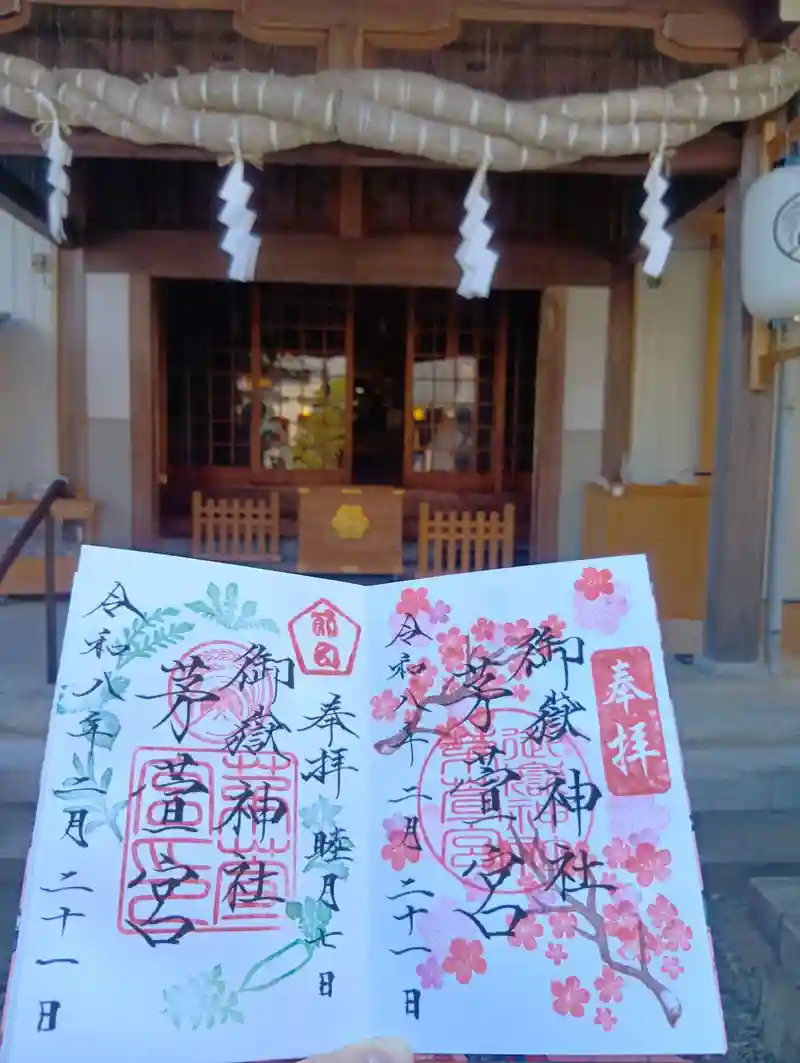 奉拝
御嶽神社
茅萱宮
令和八年二月二十一日
奉拝 睦月七日
御嶽神社
茅萱宮
令和八年二月二十一日